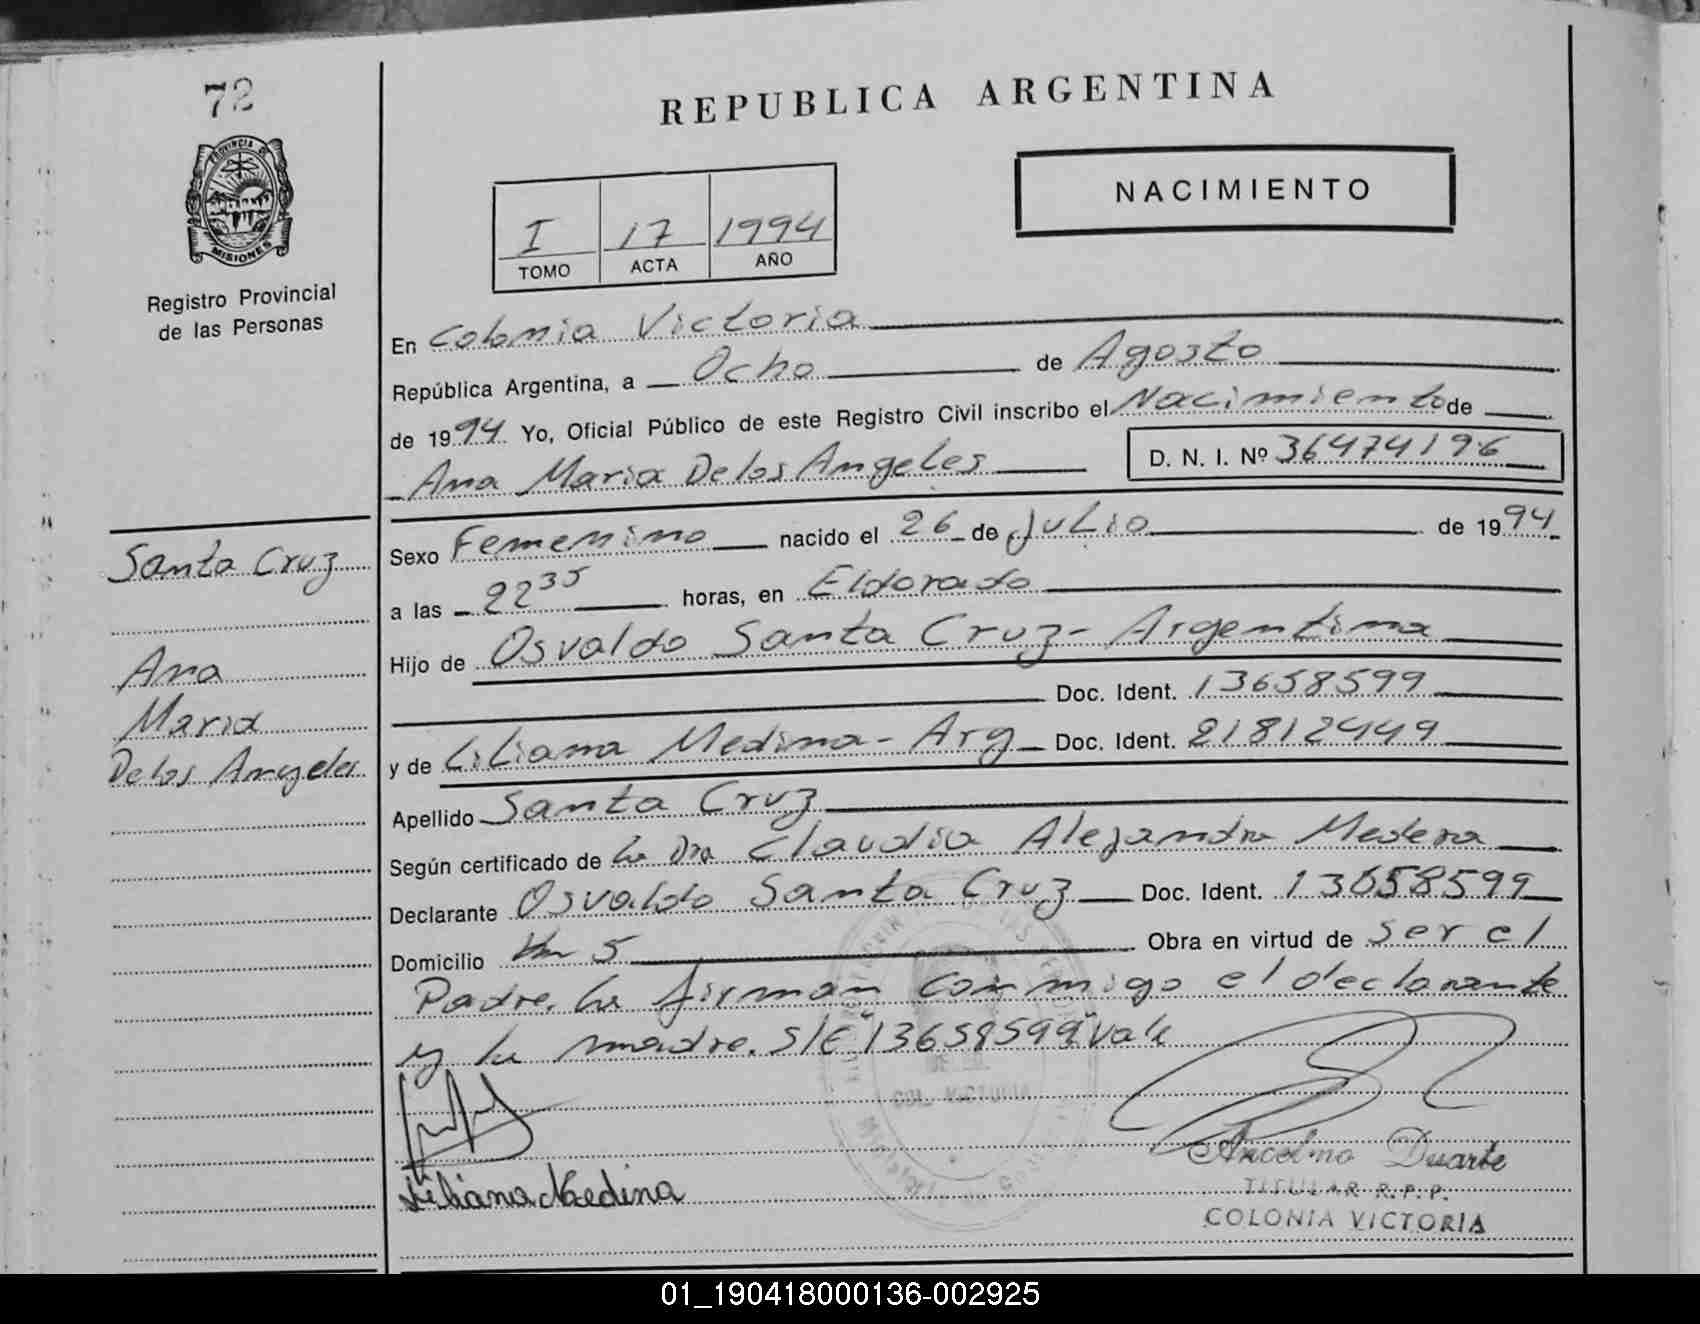 72
PROVINCIA DE
MISIONES
Registro Provincial
de las Personas
Santa Cruz
Ana
Maria
De los Angeles
REPUBLICA ARGENTINA
NACIMIENTO
I 17 1994
TOMO ACTA AÑO
En Colonia Victoria
República Argentina, a Ocho de Agosto
de 1994 Yo, Oficial Público de este Registro Civil inscribo el Nacimiento de
Ana Maria De los Angeles D. N. I. Nº 36474196
Sexo Femenino nacido el 26 de Julio de 1994
a las 22 35 horas, en Eldorado
Hijo de Osvaldo Santa Cruz - Argentina
Doc. Ident. 13658599
y de Liliana Medina - Arg Doc. Ident. 21812449
Apellido Santa Cruz
Según certificado de la Dra Claudia Alejandra Medera
Declarante Osvaldo Santa Cruz Doc. Ident. 13658599
Domicilio Km 5 Obra en virtud de ser el
Padre. La firman conmigo el declarante
y la madre. S/E "13658599" Vale
COL. VICTORIA
Liliana Medina
Ancelmo Duarte
TITULAR R.P.P.
COLONIA VICTORIA
01_190418000136-002925